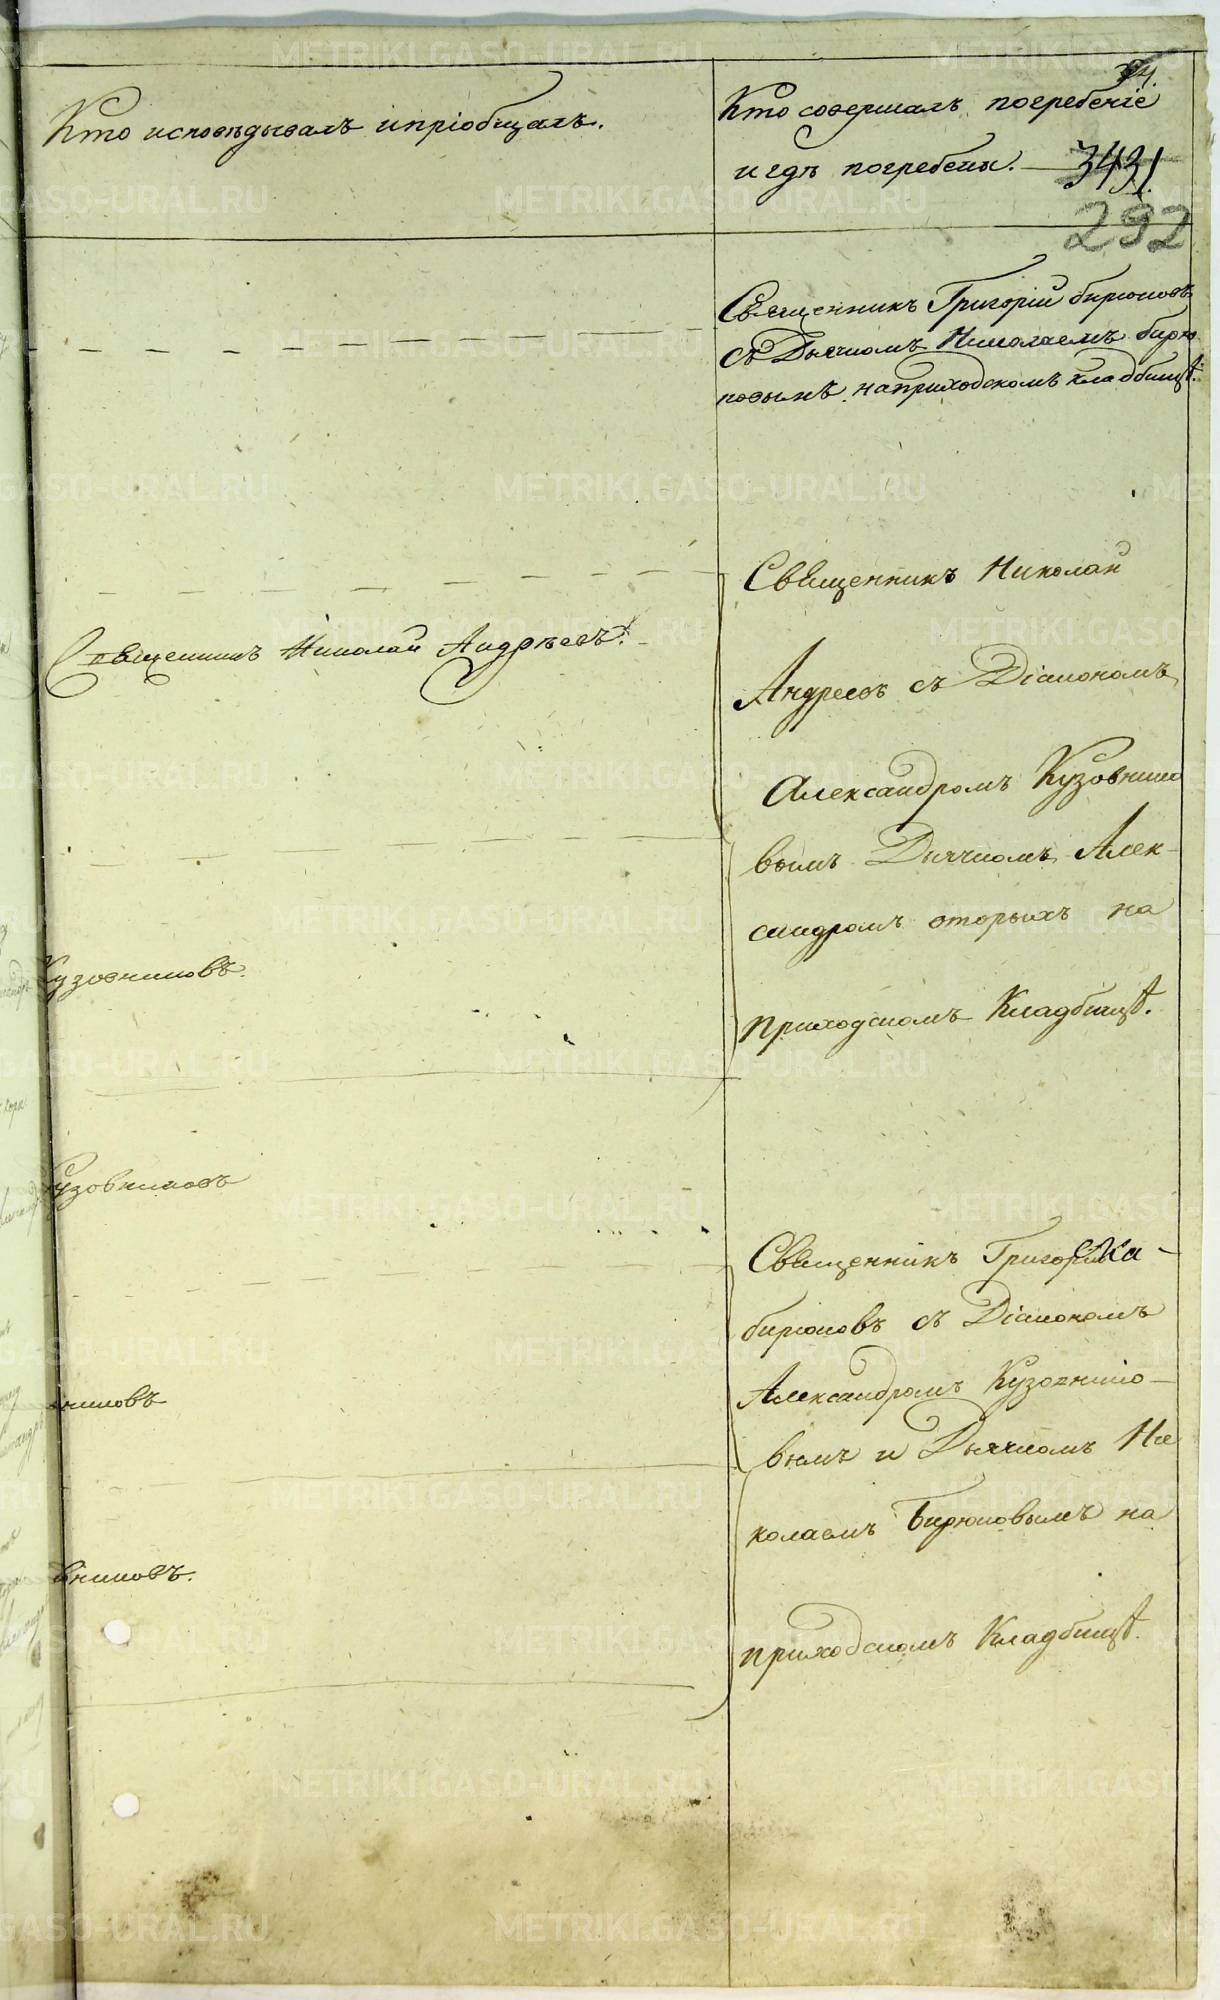 Кто исповѣдывалъ и пріобщалъ.
Кто совершалъ погребеніе
и гдѣ погребены.
3431
292
Священникъ Григорій Бирюковъ
съ Дьячкомъ Николаемъ Бирю
ковымъ на приходскомъ кладбищѣ.
Священникъ Николай Андрѣевъ.
Священникъ Николай
Андреевъ съ Діакономъ
Александромъ Кузовнико
вымъ Дьячкомъ Алек-
сандромъ на
приходскомъ Кладбищѣ.
Кузовниковъ.
Кузовниковъ
вниковъ
вниковъ.
Священникъ Григорій
Бирюковъ съ Діакономъ
Александромъ Кузовнико-
вымъ и Дьячкомъ Ни
колаемъ Бирюковымъ на
приходскомъ Кладбищѣ.
METRIKI.GASO-URAL.RU